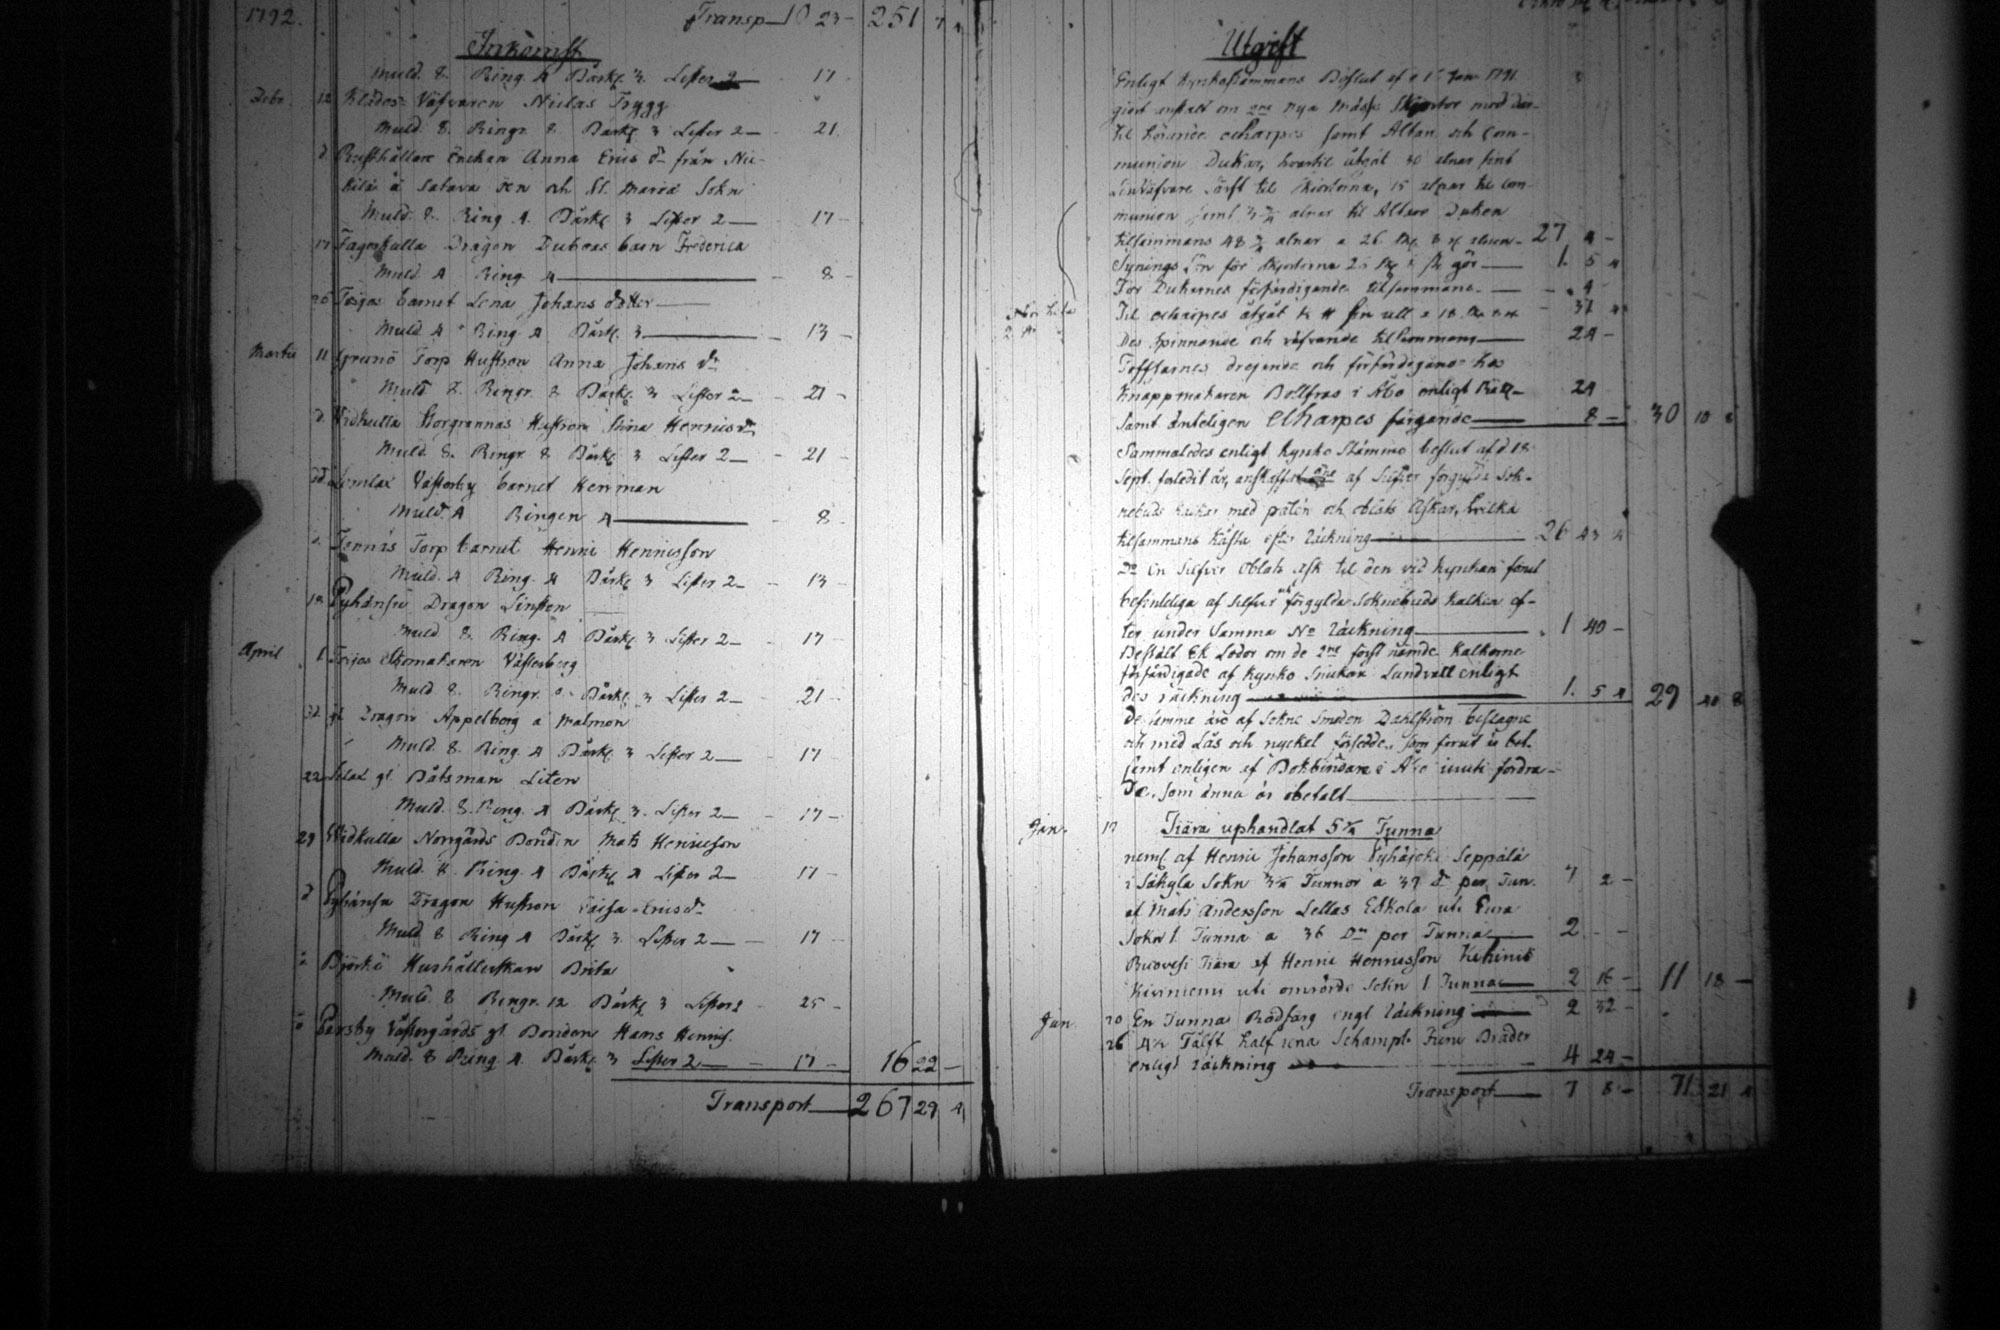 1792. Transp 10 23 - 251 7 4
Inkomst
Muld. 8. Ring. 4 Bårkl. 3. Lister 2 - 17 -
Febr. 12 Klådes Väfvaren Niclas Trygg
Muld. 8. Ringr. 8 Bårkl. 3 Lister 2 - 21.
d. Rusthållare Enckan Anna Erics dr från Nic-
kilä å Salava öen och St. Marie Sokn
Muld. 8. Ring 4. Bårkl. 3 Lister 2 - 17 -
17 Fagerkulla Dragon barn Frederica
Muld 4 Ring 4 - 8 -
26 Töijos barnet Lena Johans dotter
Muld 4 Ring 4 Bårkl. 3 - 13 -
Martii 11 Grunö Torp Hustron Anna Johans dr
Muld 8. Ringr. 8 Bårkl. 3 Lister 2 - 21 -
d. Widkulla Storgrannas Hustron Stina Henricsdr
Muld. 8. Ringr. 8 Bårkl. 3 Lister 2 - 21 -
Lemlax Västerby barnet Herman
Muld. 4 Ringen 4 - 8 -
Tennäs Torp barnet Henric Henricsson
Muld. 4 Ring. 4 Bårkl. 3 Lister 2 - 13 -
18 Pyhänsu Dragon
Muld 8. Ring. 4 Bårkl. 3 Lister 2 - 17
April 1 Töijos Skomakaren Västerberg
Muld 8. Ringr. 8 Bårkl. 3 Lister 2 - 21 -
gl. Dragon Appelberg å Malmen
Muld 8. Ring. 4 Bårkl. 3 Lister 2 - 17 -
22 gl. Båtsman Liten
Muld. 8. Ring. 4 Bårkl. 3. Lister 2 - 17 -
29 Widkulla Norrgårds Bonden Mats Henricsson
Muld. 8. Ring. 4 Bårkl. 4 Lister 2 - 17 -
d Pyhänsu Dragon Hustron Caisa Ericsdr
Muld 8 Ring 4 Bårkl. 3. Lister 2 - 17 -
Björkö Hushållerskan Brita
Muld. 8 Ringr. 12 Bårkl. 3 Lister 2 - 25 -
Garsby Västergårds gl. Bonden Hans Henrics.
Muld. 8 Ring 4. Bårkl. 3 Lister 2 - 17 - 16 22 -
Transport 267 29 4
Utgift
Enligt Kyrkostämmans Beslut af d. Jan. 1791.
giort anstalt om 2ne nya Mäss Skjortor med der-
til hörande scharpes samt Altar och Com-
munion Dukar, hvartil åtgåt 30 alnar fint
Linväfvare lärft til Skiortorna, 15 alnar til Com-
munion samt 3 3/4 alnar til Altare Duken
tilsammans 48 3/4 alnar a 26 alnen - 27 4 -
Synings Lön för Skjortorna gör - 1. 5 4
För Dukarnes förfärdigande tilsammans - 4
Til scharpes åtgåt fin ull a 18. - 37
Des spinnande och väfvande tilsammans - 24 -
Toffsarnes drejande och förfärdigande hos
Knappmakaren i Åbo enligt Räk. - 24
Samt änteligen Scharpes färgande - 8 - 30 10 8
Sammaledes enligt Kyrko Stämmo beslut af d. 18
Sept. förledit år, anskaffat 2ne af Silfver förgylda Sok-
nebuds kalkar med patén och oblats Askar, hvilka
tilsammans kåsta efter räckning - 26 43 4
Do En Silfver Oblats ask til den vid kyrckan förut
befinteliga af Silfver förgylda Soknebuds Kalken ef-
ter under Samma No räckning - 1 40 -
Bestält Ek Lådor om de 2ne först nämde Kalkarne
förfärdigade af Kyrko Snickar Lundvall enligt
des räckning - 1. 5 4 29 40 8
De samme äro af Sokne Smeden Dahlström beslagne
och med Lås och nyckel försedde, som förut är bet.
samt enligen af Bokbindare i Åbo inuti fordra-
de, som ännu är obetalt
Jan. 17 Tiära uphandlat 5 1/2 Tunna
neml. af Henric Johansson Pyhäjoki Seppälä
i Säkylä Sokn 3 1/2 Tunnor a 39 Dr per Tun. 7 2 -
af Mats Andersson Lellas Eskola uti Eura
Sokn 1. Tunna a 36 Dr per Tunna 2 - -
Tiära af Henric Henricsson
Kiviniemi uti omrörde Sokn 1 Tunna - 2 16 - 11 18 -
Jan. 20 En Tunna Rödfärg engl räckning - 2 32 -
26 4 1/2 Tålft half rena Schampt. Furu Bräder
enligt räckning - 4 24 -
Transport - 7 8 - 71 21 4